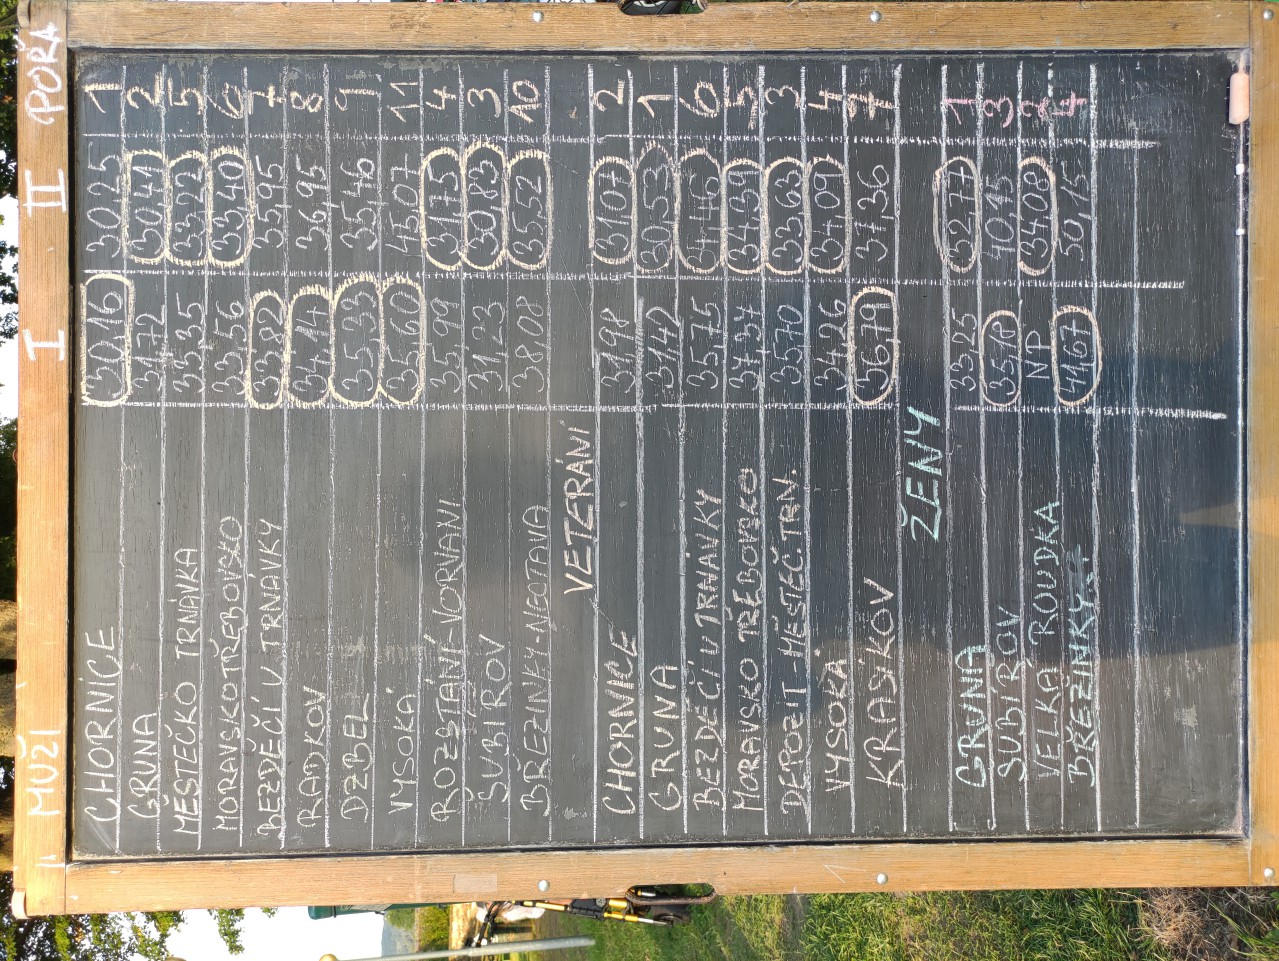 MUŽI I II POŘA
CHORNICE 30,16 30,25 1
GRUNA 31,72 30,41 2
MĚSTEČKO TRNÁVKA 33,35 33,22 5
MORAVSKOTŘEBOVSKO 33,56 33,40 6
BEZDĚČÍ U TRNÁVKY 33,82 35,95 7
RADKOV 34,14 36,95 8
DZBEL 35,33 35,46 9
VYSOKÁ 35,60 45,07 11
ROZSTÁNÍ-VORVANI 35,99 31,75 4
ŠUBÍŘOV 31,23 30,83 3
BŘEZINKY-NECTAVA 38,08 35,52 10
VETERÁNI
CHORNICE 31,98 31,07 2
GRUNA 31,42 30,53 1
BEZDĚČÍ U TRNÁVKY 35,75 34,46 6
MORAVSKO TŘEBOVSKO 37,37 34,39 5
DEPOZIT-MĚSTEČ.TRN. 35,70 33,63 3
VYSOKÁ 34,26 34,09 4
KRASÍKOV 36,79 37,36 7
ŽENY
GRUNA 33,25 32,77 1
ŠUBÍŘOV 35,18 40,15 3
VELKÁ ROUDKA NP 34,08 2
BŘEZINKY 41,67 50,15 4